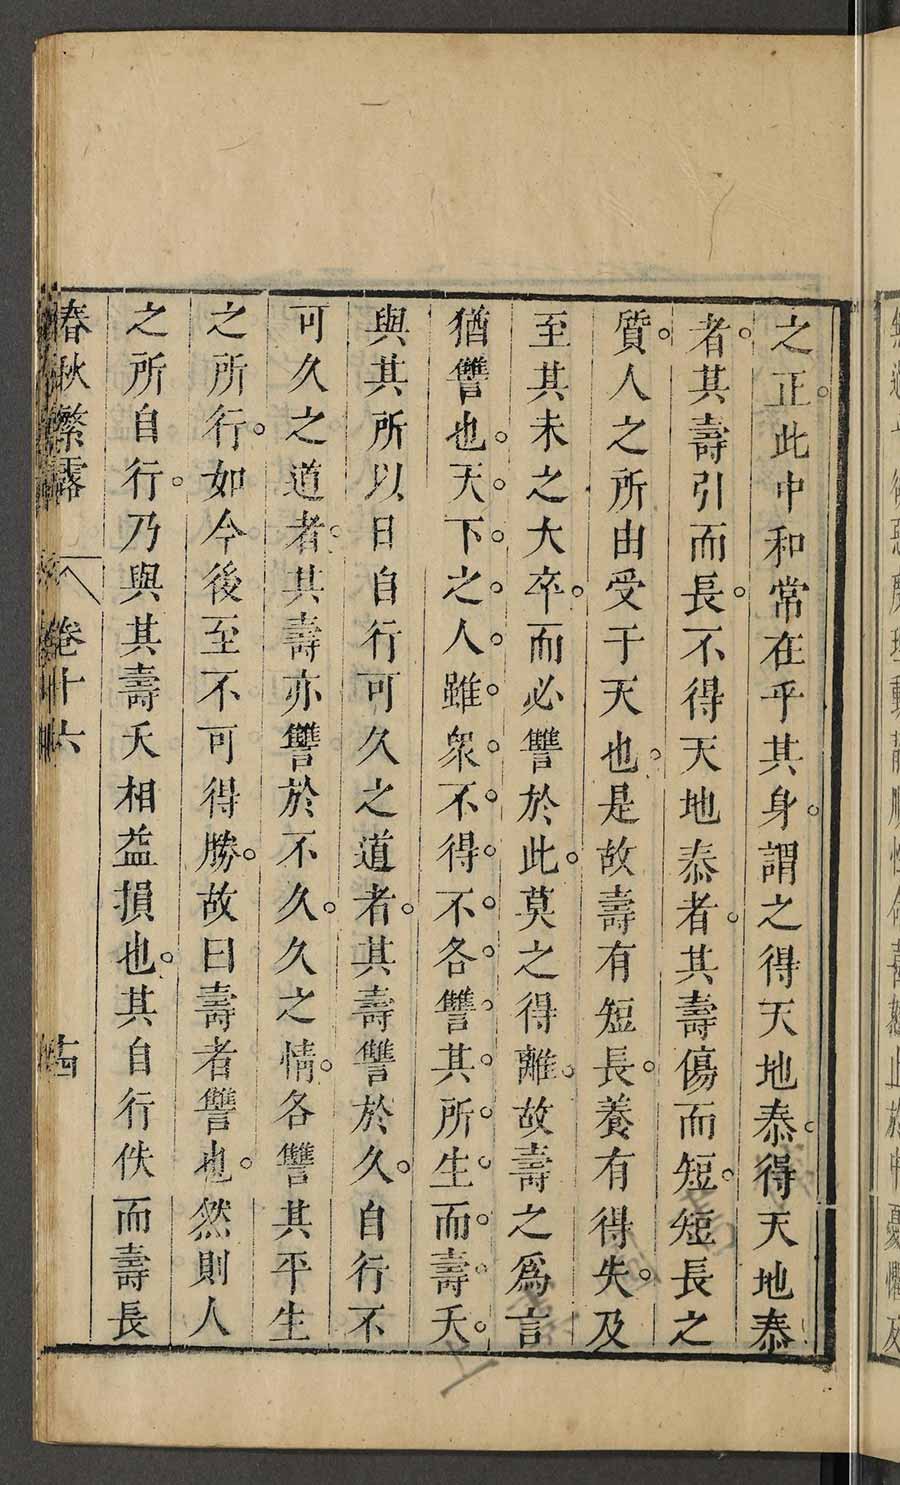 之正。此中和常在乎其身。謂之得天地泰。得天地泰
者。其壽引而長。不得天地泰者。其壽傷而短。短長之
質。人之所由受于天也。是故壽有短長。養有得失。及
至其未之大卒。而必讐於此。莫之得離。故壽之爲言
猶讐也。天。下。之。人。雖。衆。不。得。不。各。讐。其。所。生。而。壽。夭。
與其所以日自行可久之道者。其壽讐於久。自行不
可久之道者。其壽亦讐於不久。久之情。各讐其平生
之所行。如今後至不可得勝。故曰壽者讐也。然則人
之所自行。乃與其壽夭相益損也。其自行佚而壽長
春秋繁露 卷十六 十四